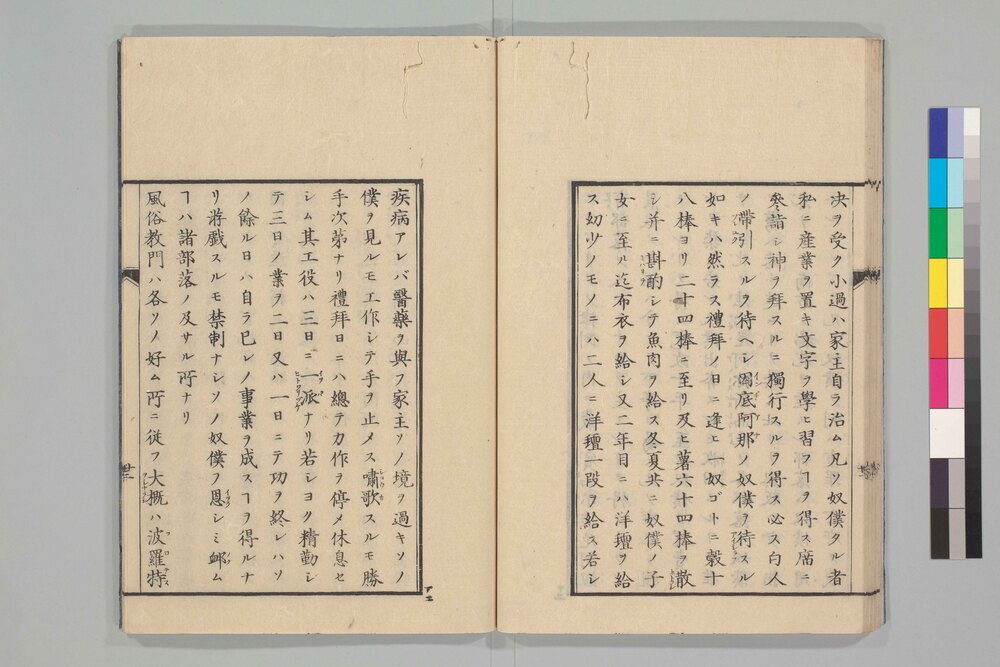 決ヲ受ク小過ハ家主自ラ治ム凡ソ奴僕タル者
私ニ産業ヲ置キ文字ヲ學ヒ習フヿヲ得ス席ニ
參詣シ神ヲ拜スルニ獨行スルヲ得ス必ス白人
ノ帶引スルヲ待ヘシ因底阿那ノ奴僕ヲ待スル
如キハ然ラス禮拜ノ日ニ逢ヒ一奴ゴトニ穀十
八棒ヨリ二十四棒ニ至リ及ヒ薯六十四棒ヲ散
シ并ニ斟酌シテ魚肉ヲ給ス冬夏共ニ奴僕ノ子
女ニ至ル迄布衣ヲ給シ又二年目ニハ洋㲲ヲ給
ス幼少ノモノニハ二人ニ洋㲲一段ヲ給ス若シ
疾病アレバ醫藥ヲ與フ家主ソノ境ヲ過キソノ
僕ヲ見ルモ工作シテ手ヲ止メス嘯歌スルモ勝
手次第ナリ禮拜日ニハ總テ力作ヲ停メ休息セ
シム其工役ハ三日ニ一派ナリ若シヨク精勤シ
テ三日ノ業ヲ二日又ハ一日ニテ功ヲ終レハソ
ノ餘ル日ハ自ラ已レノ事業ヲ成スヿヲ得ルナ
リ游戲スルモ禁制ナシソノ奴僕ヲ恩シミ衈ム
ヿハ諸部落ノ及サル所ナリ
風俗教門ハ各ソノ好ム所ニ從フ大概ハ波羅特